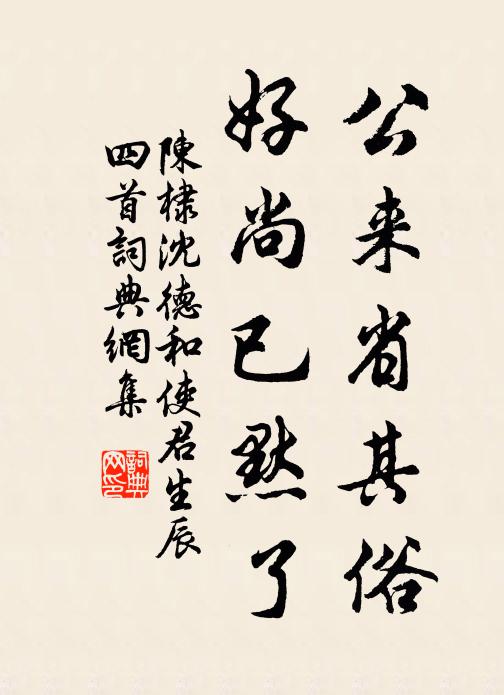 公来省其俗
好尚已默了
陳棣沈德和使君生辰
四首詞典網集
詞典
网印